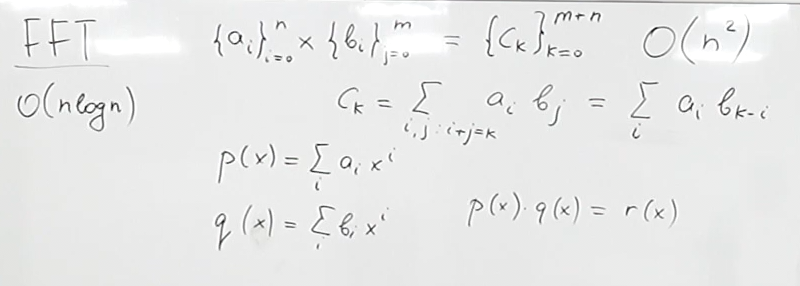 FFT {a_i}_{i=0}^{n} × {b_i}_{j=0}^{m} = {C_k}_{k=0}^{m+n} O(n²)
O(n log n) C_k = Σ_{i,j: i+j=k} a_i b_j = Σ_i a_i b_{k-i}
p(x) = Σ_i a_i x^i
q(x) = Σ_i b_i x^i p(x)·q(x) = r(x)